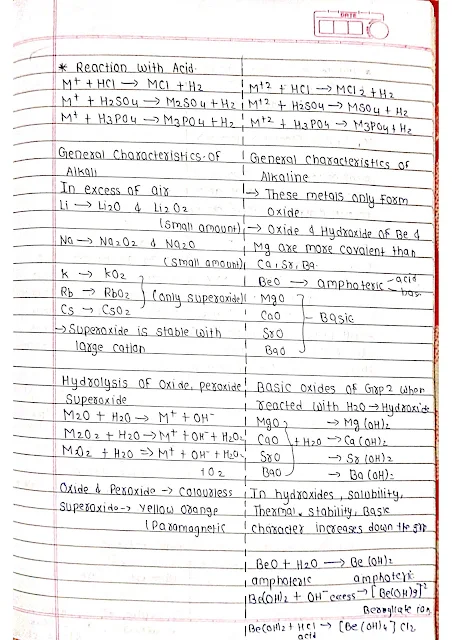 DATE
* Reaction with Acid
M+ + HCl → MCl + H2
M+ + H2SO4 → M2SO4 + H2
M+ + H3PO4 → M3PO4 + H2
M+2 + HCl → MCl2 + H2
M+2 + H2SO4 → MSO4 + H2
M+2 + H3PO4 → M3PO4 + H2
General Characteristics of
Alkali
In excess of air
Li → Li2O & Li2O2
(small amount)
Na → Na2O2 & Na2O
(small amount)
K → KO2
Rb → RbO2 (only superoxide)
Cs → CsO2
→ Superoxide is stable with
large cation
General characteristics of
Alkaline
→ These metals only form
oxide
→ Oxide & Hydroxide of Be &
Mg are more covalent than
Ca, Sr, Ba
BeO → amphoteric acid
MgO
CaO Basic
SrO
BaO
Hydrolysis of Oxide, peroxide,
Superoxide
M2O + H2O → M+ + OH-
M2O2 + H2O → M+ + OH- + H2O2
MO2 + H2O → M+ + OH- + H2O2
+ O2
Oxide & Peroxide → Colourless
Superoxide → Yellow orange
(Paramagnetic
Basic oxides of Grp 2 when
reacted with H2O → Hydroxide
MgO → Mg(OH)2
CaO + H2O → Ca(OH)2
SrO → Sr(OH)2
BaO → Ba(OH)2
In hydroxides, solubility,
Thermal stability, Basic
character increases down the grp
BeO + H2O → Be(OH)2
amphoteric amphoteric
Be(OH)2 + OH- excess →
Beryllate ion
Be(OH)2 + HCl → [Be(OH)4]Cl2
acid